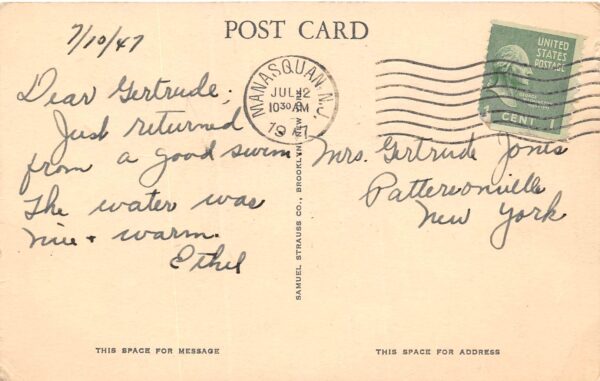 7/10/47
POST CARD
Dear Gertrude;
Just returned
from a good swim
The water was
nice + warm.
Ethel
MANASQUAN, N.J.
JUL 12
10 30 AM
1947
UNITED
STATES
POSTAGE
1 CENT 1
Mrs. Gertrude Jones
Pattersonville
New York
SAMUEL STRAUSS CO., BROOKLYN, NEW
THIS SPACE FOR MESSAGE
THIS SPACE FOR ADDRESS